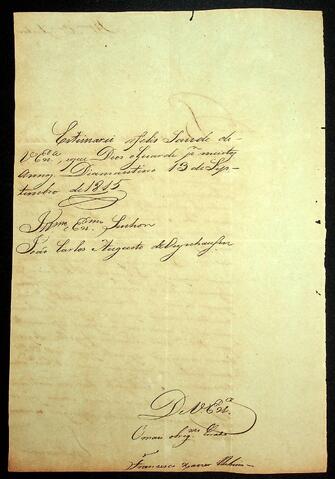 Estimarei feliz Saude de
V. Exª., e que Deos Guarde pr. muitos
Annos. Diamantino 13 de Sep-
tembro de 1815
Illmo. e Exmo. Senhor
João Carlos Augusto de Oeynhausen
De V. Exª.
O mais obrigmo. Criado
Francisco Xavier